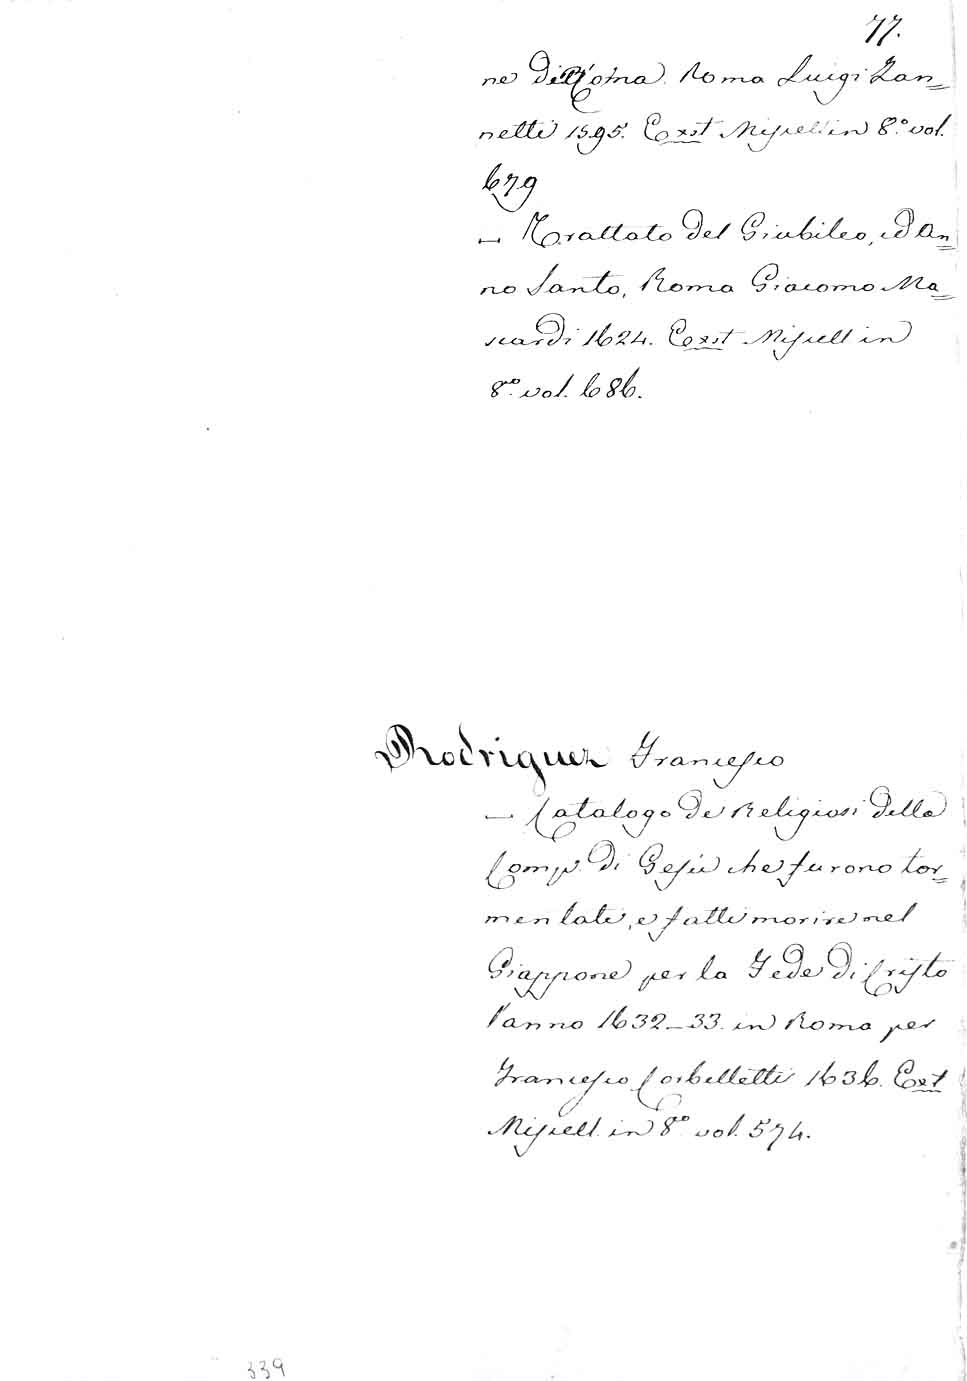 77.
ne di Roma. Roma Luigi Zan=
netti 1595. Exst Miscell in 8.º vol.
679
— Trattato del Giubileo, ed An=
no Santo, Roma Giacomo Ma=
scardi 1624. Exst Miscell in
8.º vol. 686.
Rodriguez Francesco
— Catalogo de Religiosi della
Comp. di Gesù che furono tor=
mentati, e fatti morire nel
Giappone per la Fede di Cristo
l'anno 1632-33. in Roma per
Francesco Corbelletti 1636. Ext
Miscell. in 8.º vol. 574.
339